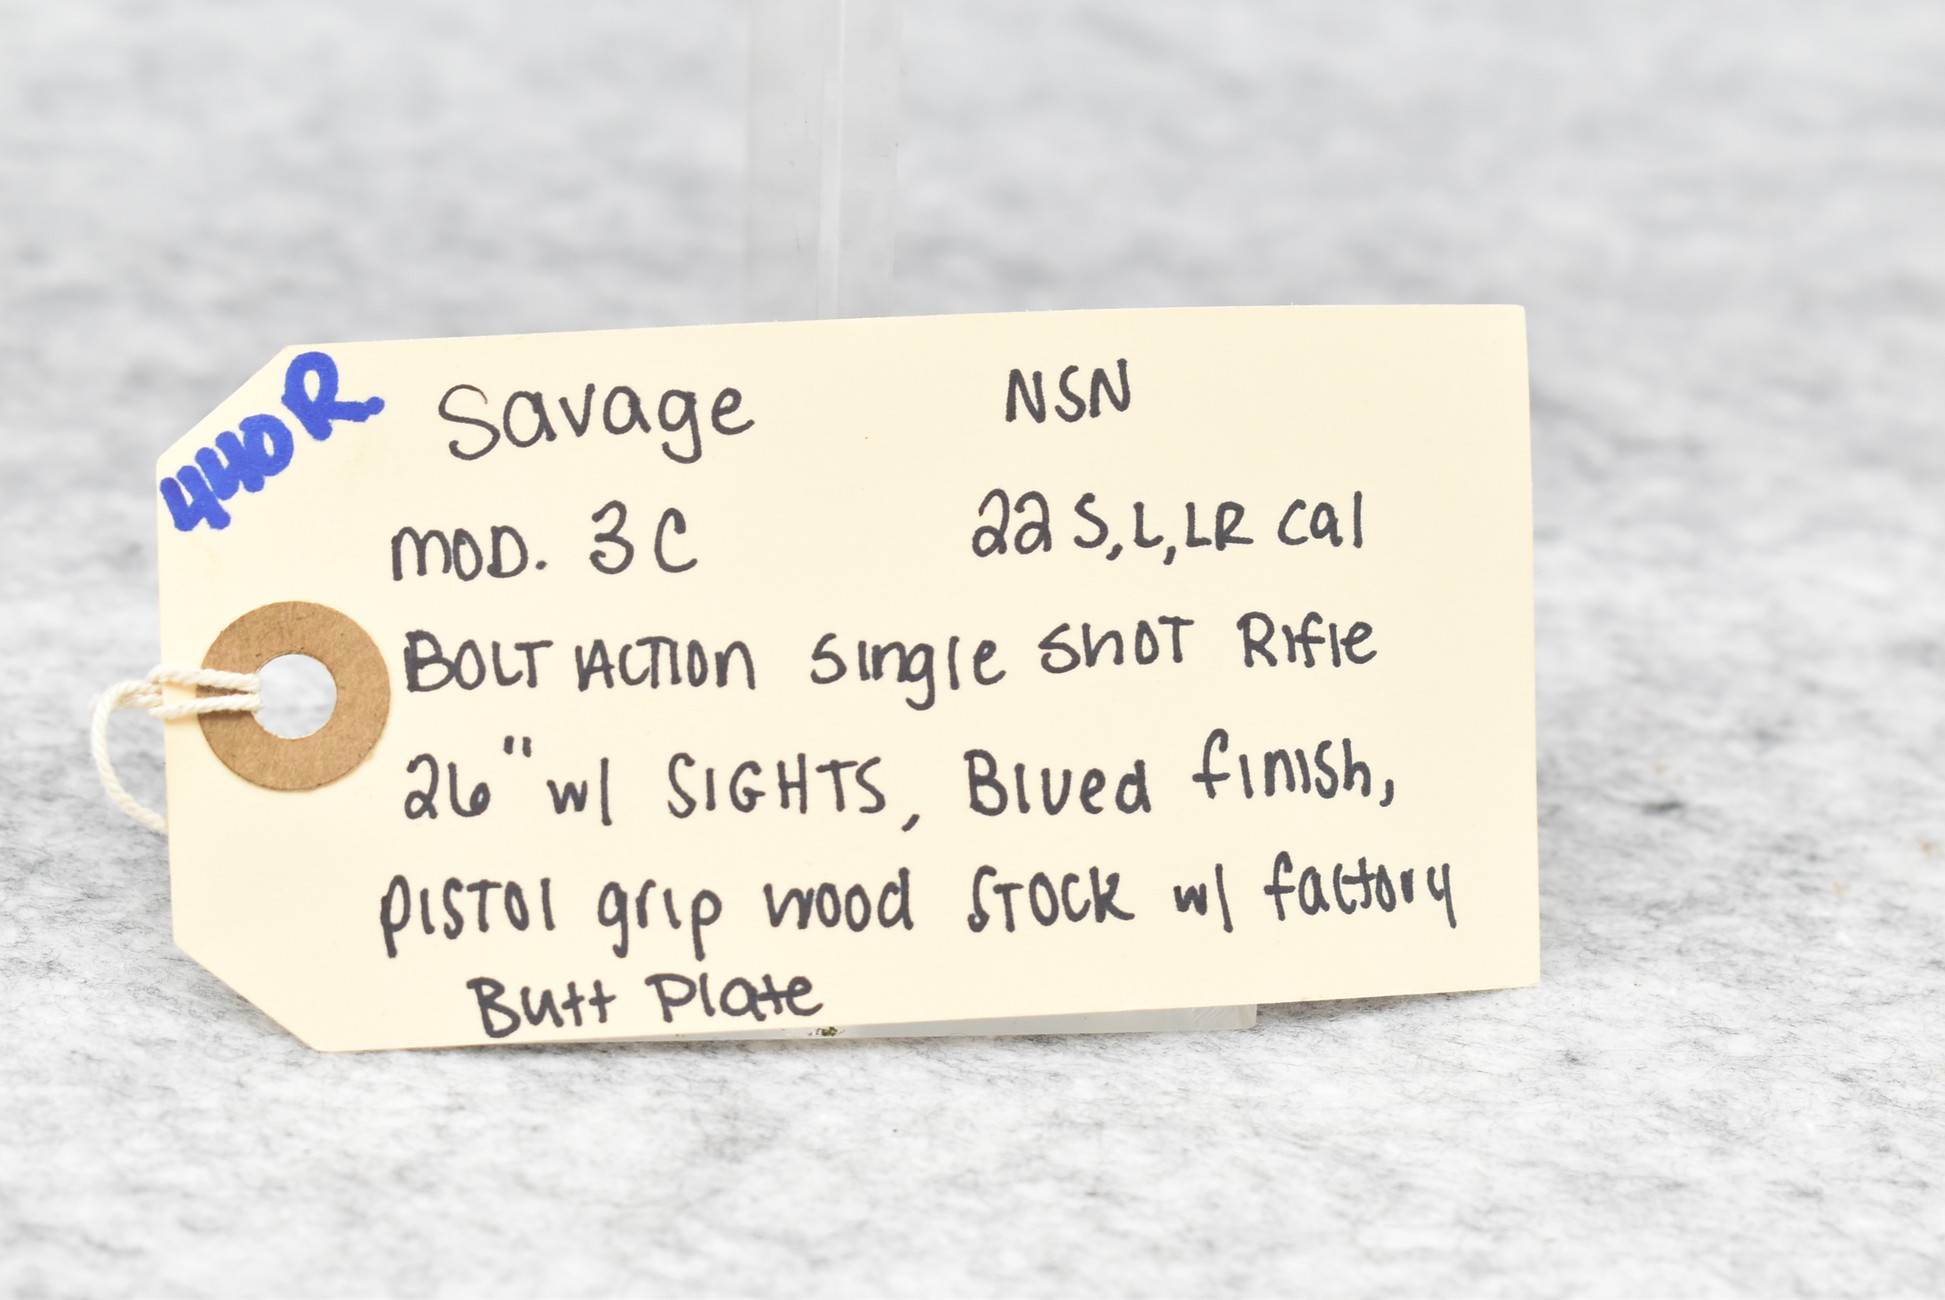 440R
Savage NSN
MOD. 3C 22 S,L,LR cal
BOLT ACTION Single ShOT Rifle
26" w/ SIGHTS, Blued finish,
PISTOl grip wood STOCK w/ factory
Butt Plate